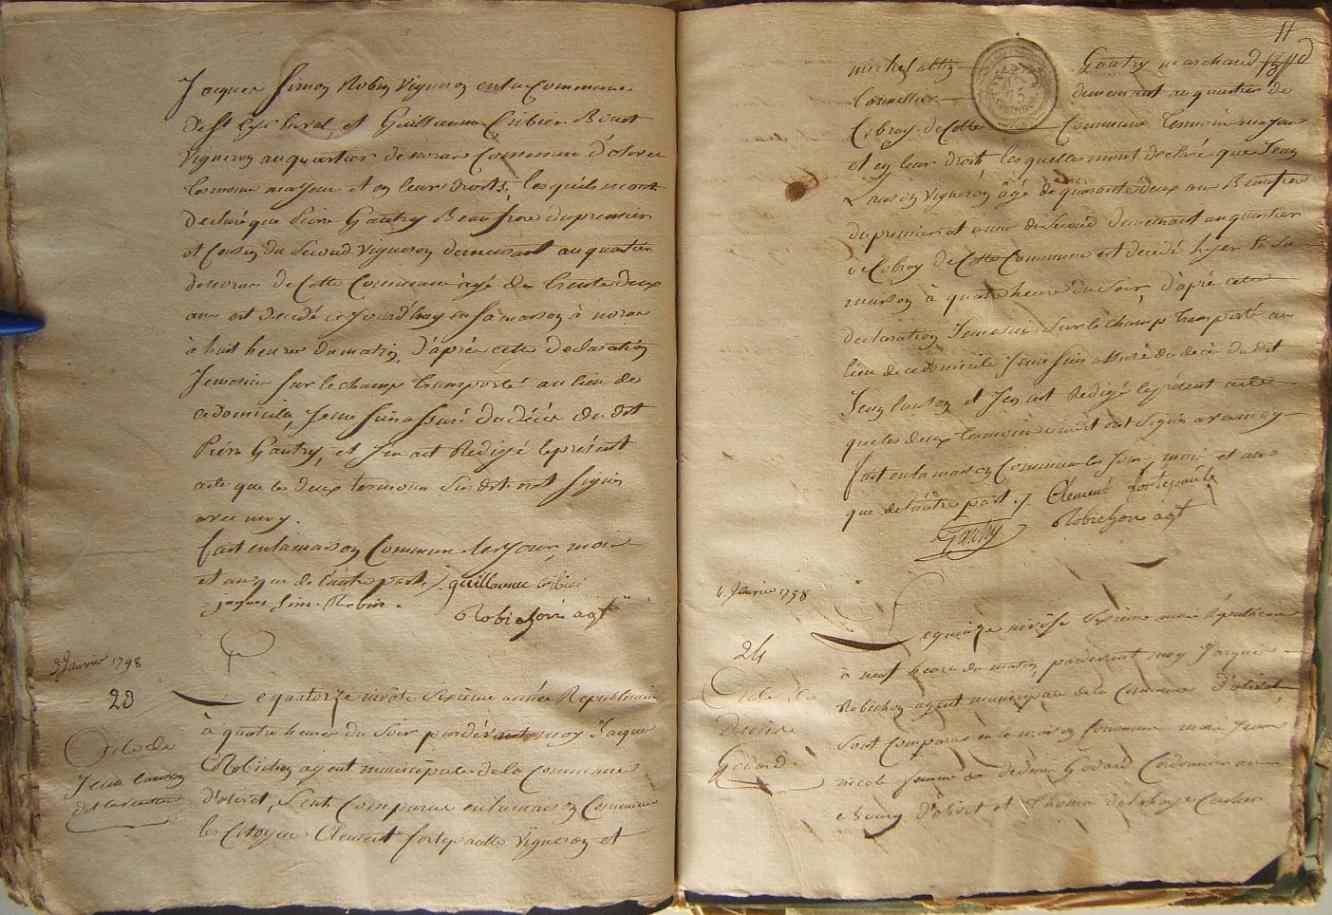 Jacques Simon Robin Vigneron en la Commune
de St et Guillaume Cribier Benoit
Vigneron au quartier de Commune d'olivet
majeur et en leurs droits, lesquels m'ont
Declaré que Piere Gautry Beaufrere du premier
et Cousin du Second Vigneron demeurant au quartier
de de Cette Commune âgé de trente deux
ans est decedé ce Jourd'huy en sa maison à
à huit heures du matin, d'après cette Declaration
Je me suis sur le champ transporté au lieu de
ce domicile, Je me suis assuré du décès du dit
Piére Gautry, et J'en ait Redigé le présent
acte que les deux temoins Susdit ont signés
avec moy.
fait en la maison Commune les Jour, mois
et an que de l'autre part ./. guillaume cribier
jaques Simon Robin.
Robichon agt
3 Janvier 1798
23
Jean lauson
Le quatorze nivôse Sixieme année Republicaine
à quatre heures du Soir pardevant moy Jacques
Robichon agent municipale de la Commune
D'olivet, Sont Comparus en la maison Commune
les Citoyens Clement fortepaulle Vigneron et
11
michel Gautry marchand
Tonnellier demeurant au quartier de
Cobray de Cette Commune temoins majeurs
et en leur droits lesquelles m'ont declaré que Jean
Lauson Vigneron âgé de quarante deux ans Beaufrere
du premier et du Second demeurant au quartier
de Cobray de Cette Commune est decedé hyer en sa
maison à quatre heures du Soir, d'après cette
declaration Je me suis Sur le champ transporté au
lieu de ce domicile Je me suis assuré du décès du dit
Jean lauson et J'en ait Redigé le présent acte
que les deux temoins susdit ont Signés avec moy
fait en la maison Commune les Jour, mois et ans
que de l'autre part ./. Clement fortepaulle
Gautry Robichon agt
4 Janvier 1798
24
Acte de
Godard
Le quinze nivôse Sixieme année Républicaine
à neuf heures du matin, pardevant moy Jacques
Robichon agent municipale de la Commune D'olivet
Sont Comparus en la maison Commune marie Jeanne
nicole femme de Godard Cordonnier au
Bourg D'olivet et Thomas